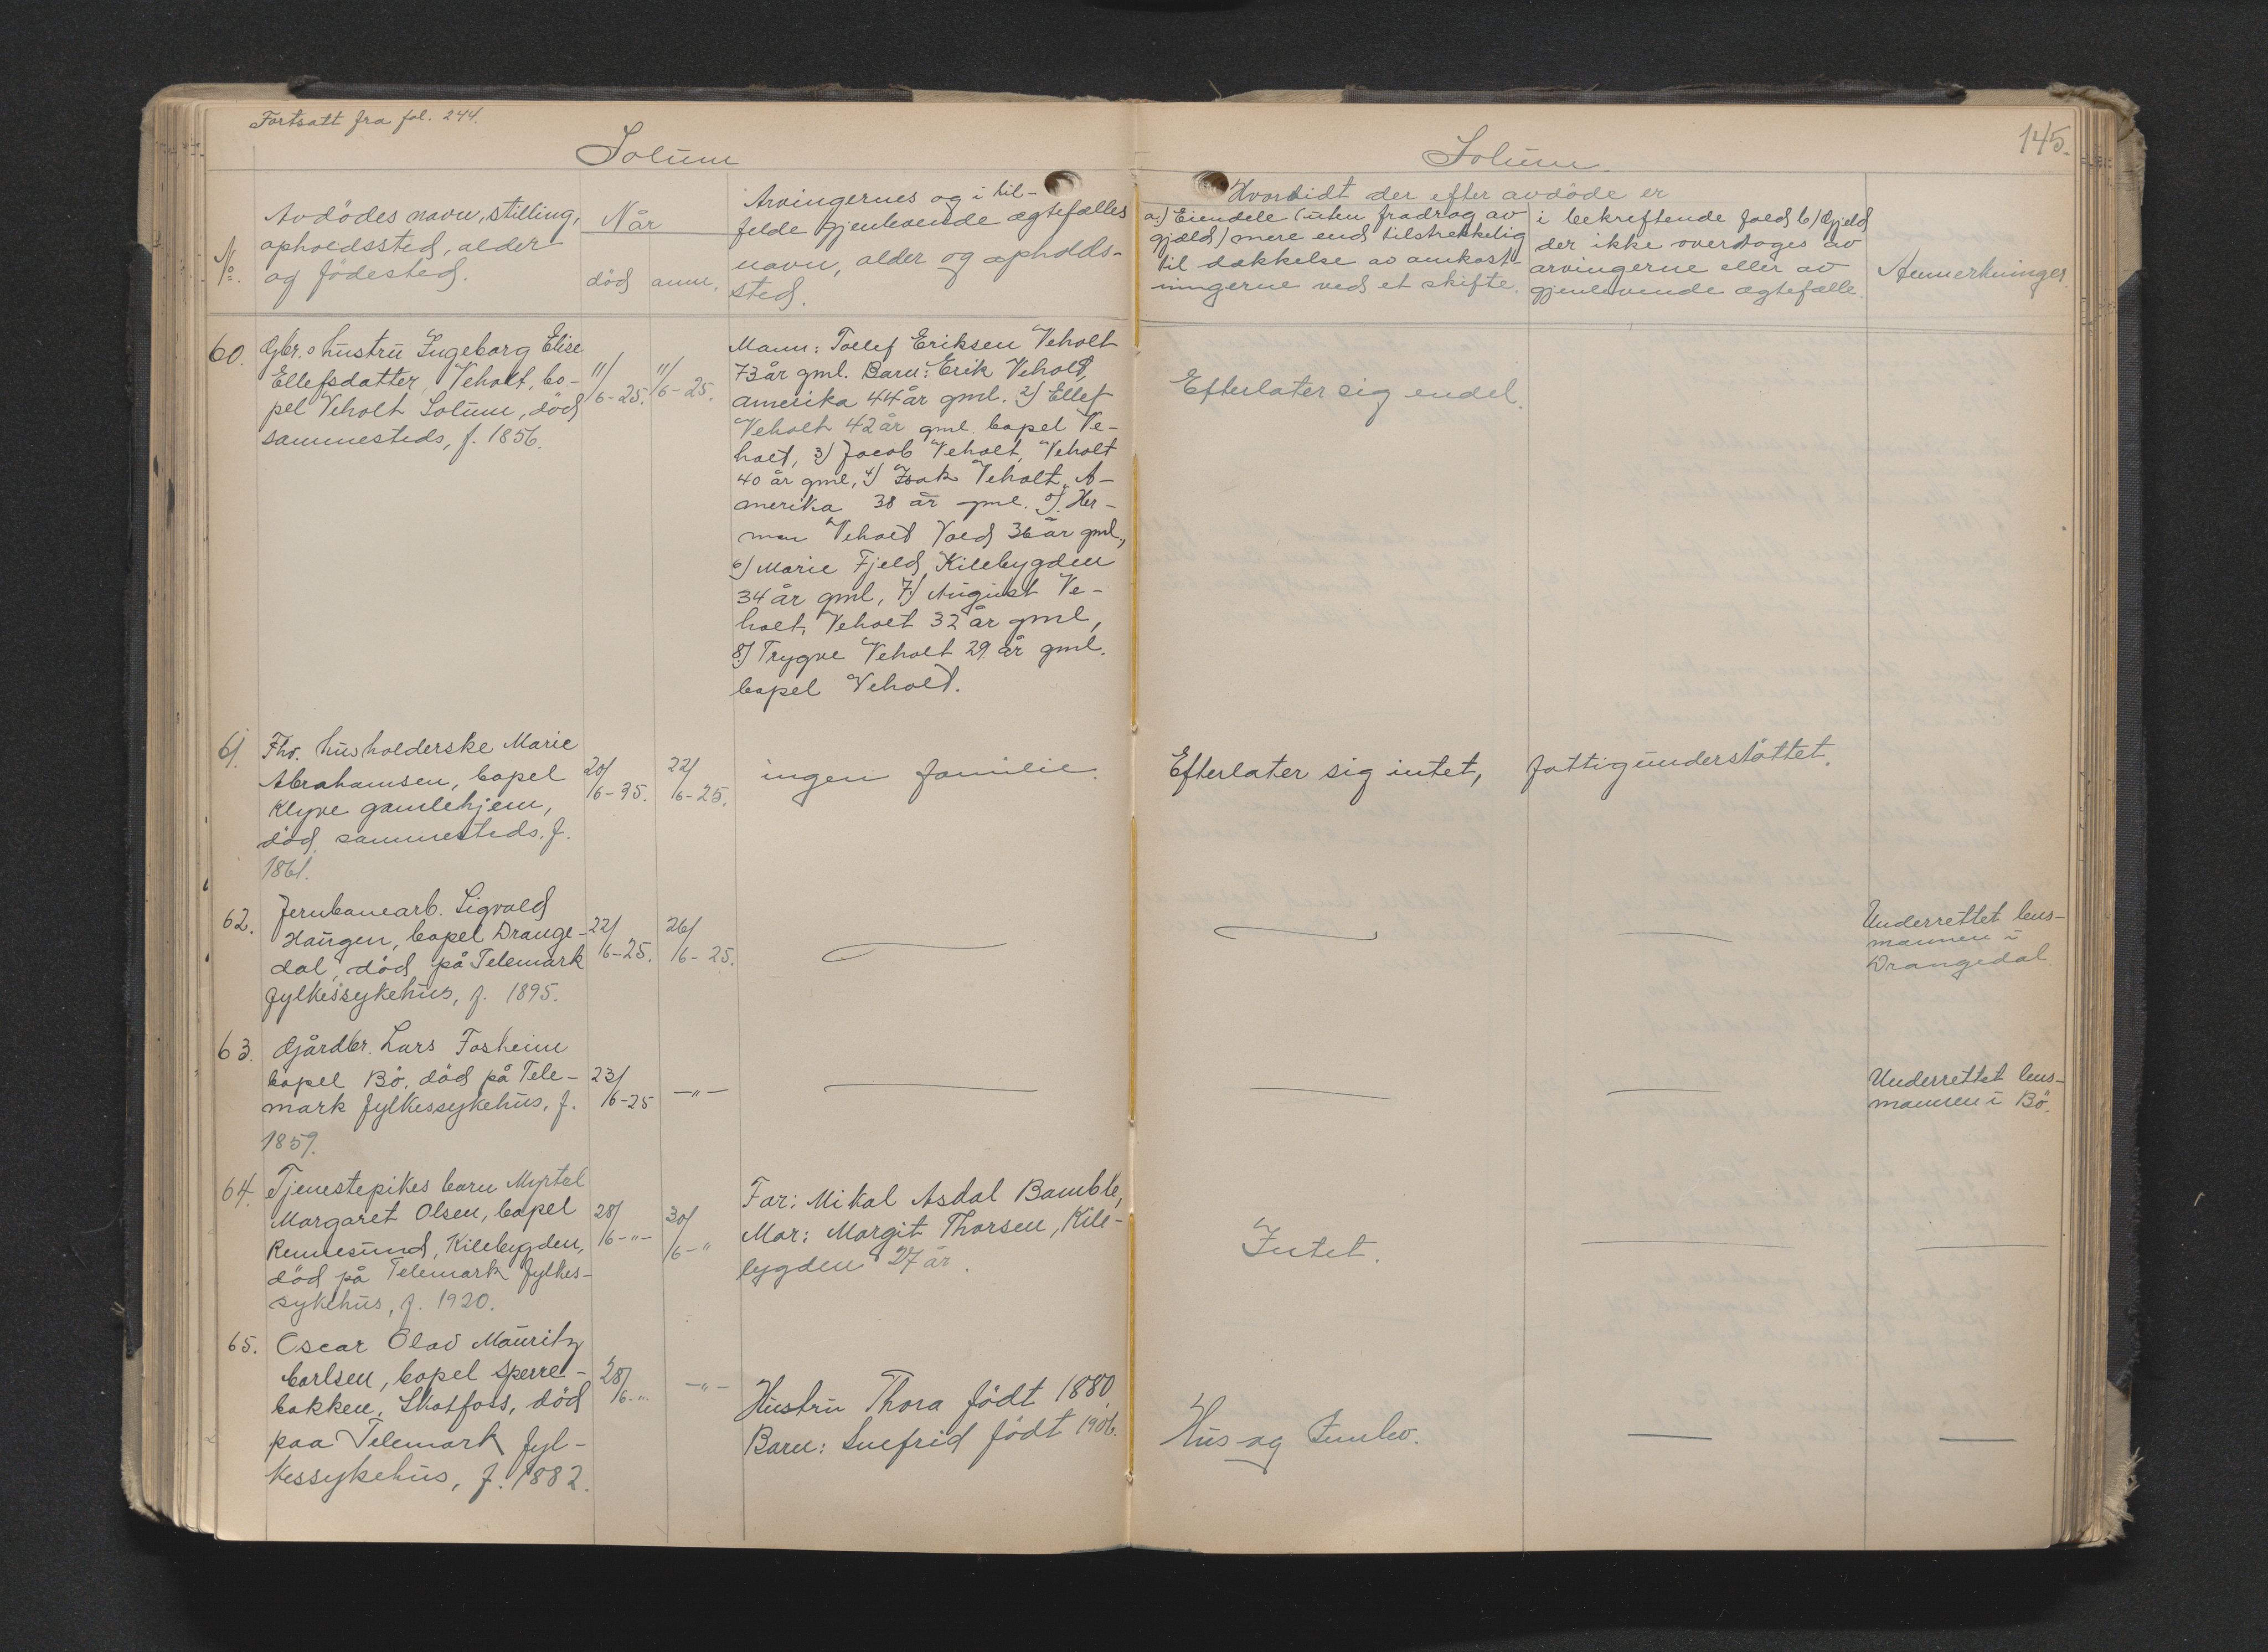 Fortsatt fra fol. 244.
Solum
Solum.
145.
No.
Avdödes navn, stilling,
opholdssted, alder
og födested.
Når
död anm.
Arvingernes og i til-
felde gjenlevende ægtefælles
navn, alder og opholds-
sted.
Hvorvidt der efter avdöde er
a.) Eiendele (uten fradrag av
gjæld) mere end tilstrekkelig
til dækkelse av omkost-
ningerne ved et skifte.
i bekreftende fald b) Gjeld
der ikke overdtages av
arvingerne eller av
gjenlevende ægtefælle.
Anmerkninger
60.
Gbr.s hustru Ingeborg Elise
Ellefsdatter, Veholt, bo-
pel Veholt Solum, död
sammesteds, f. 1856.
11/6-25.
11/6-25.
Mann: Tollef Eriksen Veholt
73 år gml. Barn: Erik Veholt,
amerika 44 år gml. 2) Ellef
Veholt 42 år gml. bopel Ve-
holt, 3) Jacob Veholt, Veholt
40 år gml, 4) Isak Veholt, A-
merika 38 år gml. 5). Her-
man Veholt Vold 36 år gml,
6) Marie Fjeld Kilebygden
34 år gml, 7) August Ve-
holt, Veholt 32 år gml,
8) Trygve Veholt 29 år gml.
bopel Veholt.
Efterlater sig endel.
61.
Fhv. husholderske Marie
Abrahamsen, bopel
Klyve gamlehjem,
död sammesteds. f.
1861.
20/6-35.
22/6-25.
ingen familie.
Efterlater sig intet,
fattigunderstöttet.
62.
Jernbanearb. Sigvald
Haugen, bopel Drange-
dal, död på Telemark
fylkessykehus, f. 1895.
22/6-25.
26/6-25.
Underrettet lens-
mannen i
Drangedal.
63.
Gårdbr. Lars Fosheim
bopel Bö, död på Tele-
mark fylkessykehus, f.
1859.
23/6-25
-"-
Underrettet lens-
mannen i Bö.
64.
Tjenestepikes barn Myrtel
Margaret Olsen, bopel
Rennesund, Kilebygden,
död på Telemark fylkes-
sykehus, f. 1920.
28/6-"-
30/6-"
Far: Mikal Asdal Bamble,
Mor: Margit Thorsen, Kile-
bygden 27 år.
Intet.
65.
Oscar Olav Mauritz
Carlsen, bopel Sperre-
bakken, Skotfoss, död
paa Telemark fyl-
kessykehus, f. 1882.
28/6-"
-"-
Hustru Thora födt 1880,
Barn: Snefrid födt 1906.
Hus og Innbo.